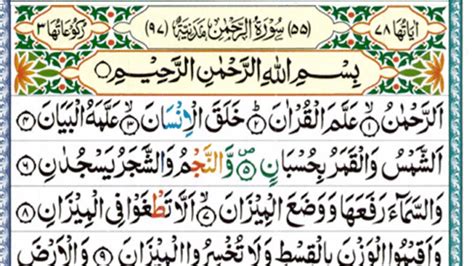 اٰيَاتُهَا ٧٨ (٥٥) سُوْرَةُ الرَّحْمٰنِ مَدَنِيَّةٌ (٩٧) رُكُوْعَاتُهَا ٣
بِسْمِ اللّٰهِ الرَّحْمٰنِ الرَّحِيْمِ
اَلرَّحْمٰنُ ۙ﴿١﴾ عَلَّمَ الْقُرْاٰنَ ؕ﴿٢﴾ خَلَقَ الْاِنْسَانَ ۙ﴿٣﴾ عَلَّمَهُ الْبَيَانَ ﴿٤﴾
اَلشَّمْسُ وَالْقَمَرُ بِحُسْبَانٍ ۪﴿٥﴾ وَّالنَّجْمُ وَالشَّجَرُ يَسْجُدٰنِ ﴿٦﴾
وَالسَّمَآءَ رَفَعَهَا وَوَضَعَ الْمِيْزَانَ ۙ﴿٧﴾ اَلَّا تَطْغَوْا فِى الْمِيْزَانِ ﴿٨﴾
وَاَقِيْمُوا الْوَزْنَ بِالْقِسْطِ وَلَا تُخْسِرُوا الْمِيْزَانَ ﴿٩﴾ وَالْاَرْضَ